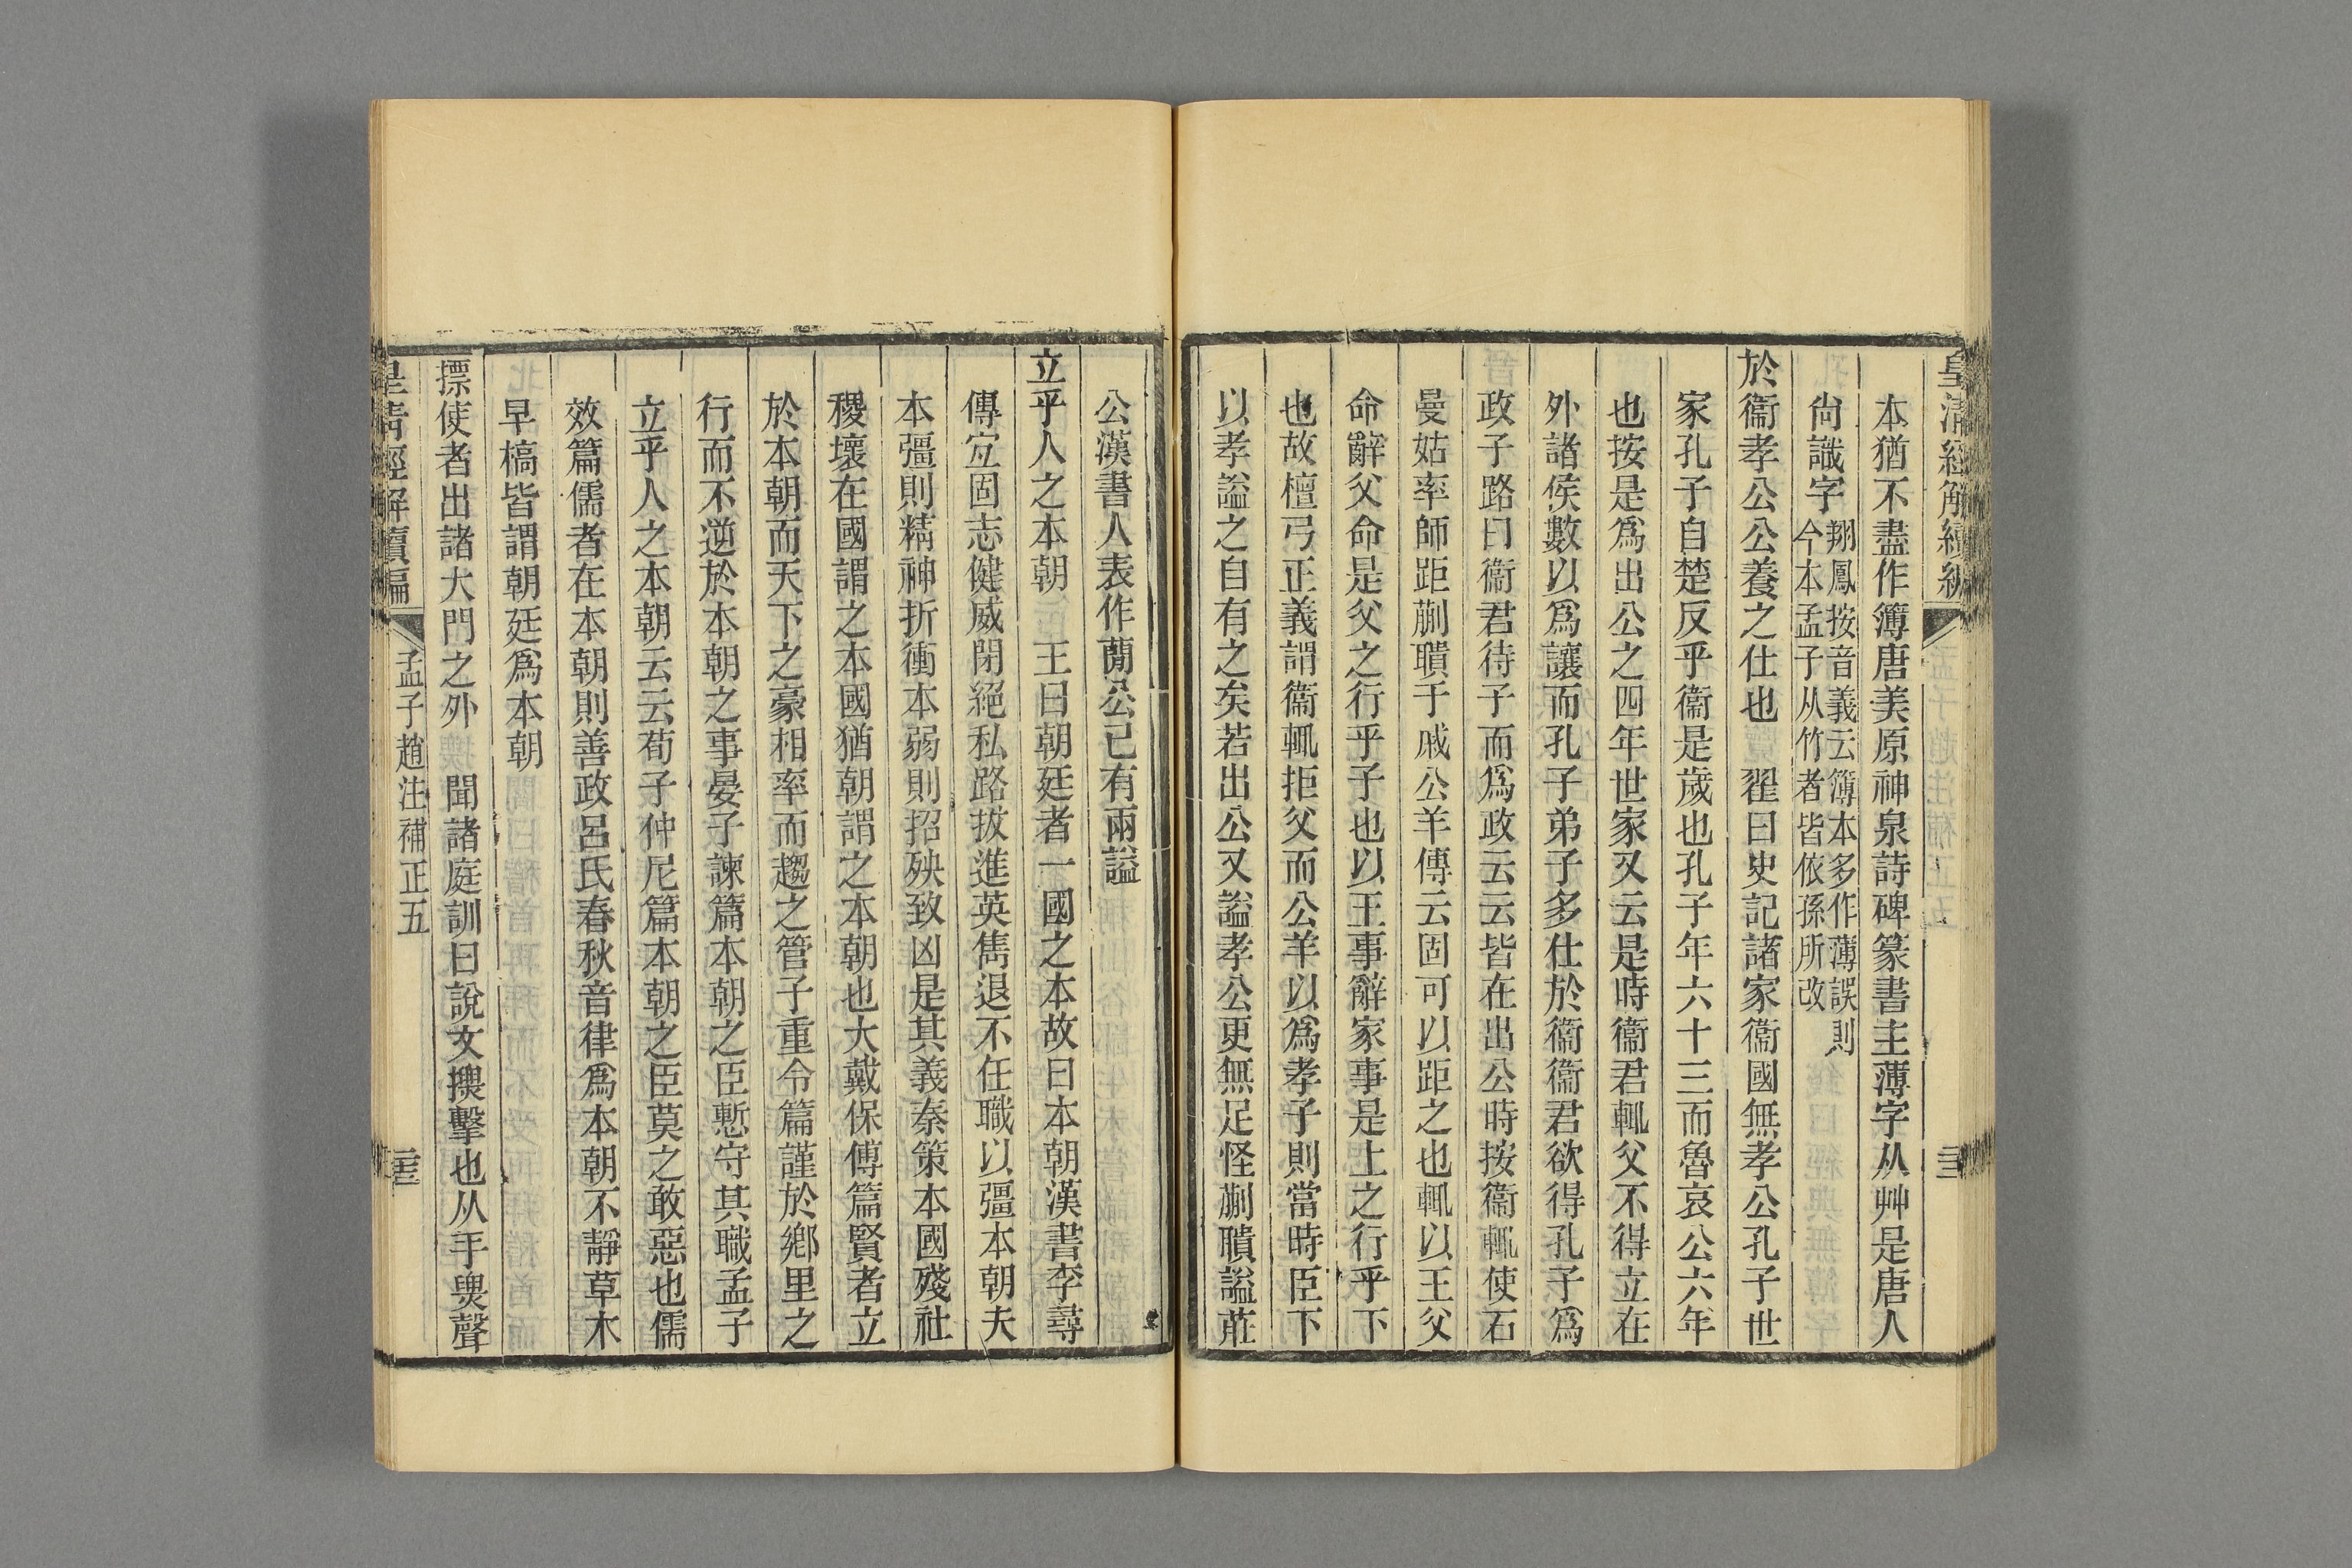 皇清經解續編
本猶不盡作簿唐美原神泉詩碑篆書主薄字从艸是唐人
尙識字翔鳳按音義云簿本多作薄誤則
今本孟子从竹者皆依孫所改
於衞孝公公養之仕也　翟曰史記諸家衞國無孝公孔子世
家孔子自楚反乎衞是歲也孔子年六十三而魯哀公六年
也按是爲出公之四年世家又云是時衞君輒父不得立在
外諸侯數以爲讓而孔子弟子多仕於衞衞君欲得孔子爲
政子路曰衞君待子而爲政云云皆在出公時按衞輒使石
曼姑率師距蒯聵于戚公羊傳云固可以距之也輒以王父
命辭父命是父之行乎子也以王事辭家事是上之行乎下
也故檀弓正義謂衞輒拒父而公羊以爲孝子則當時臣下
以孝謚之自有之矣若出公又謚孝公更無足怪蒯聵謚莊
公漢書人表作蕑公已有兩謚
立乎人之本朝　王曰朝廷者一國之本故曰本朝漢書李尋
傳宐固志健威閉絕私路拔進英雋退不任職以彊本朝夫
本彊則精神折衝本弱則招殃致凶是其義秦策本國殘社
稷壞在國謂之本國猶朝謂之本朝也大戴保傅篇賢者立
於本朝而天下之豪相率而趨之管子重令篇謹於鄉里之
行而不逆於本朝之事晏子諫篇本朝之臣慙守其職孟子
立乎人之本朝云云荀子仲尼篇本朝之臣莫之敢惡也儒
效篇儒者在本朝則善政呂氏春秋音律爲本朝不靜草木
早槁皆謂朝廷爲本朝
摽使者出諸大門之外　聞諸庭訓曰說文摽擊也从手㶾聲
皇淸經解續編
孟子趙注補正五